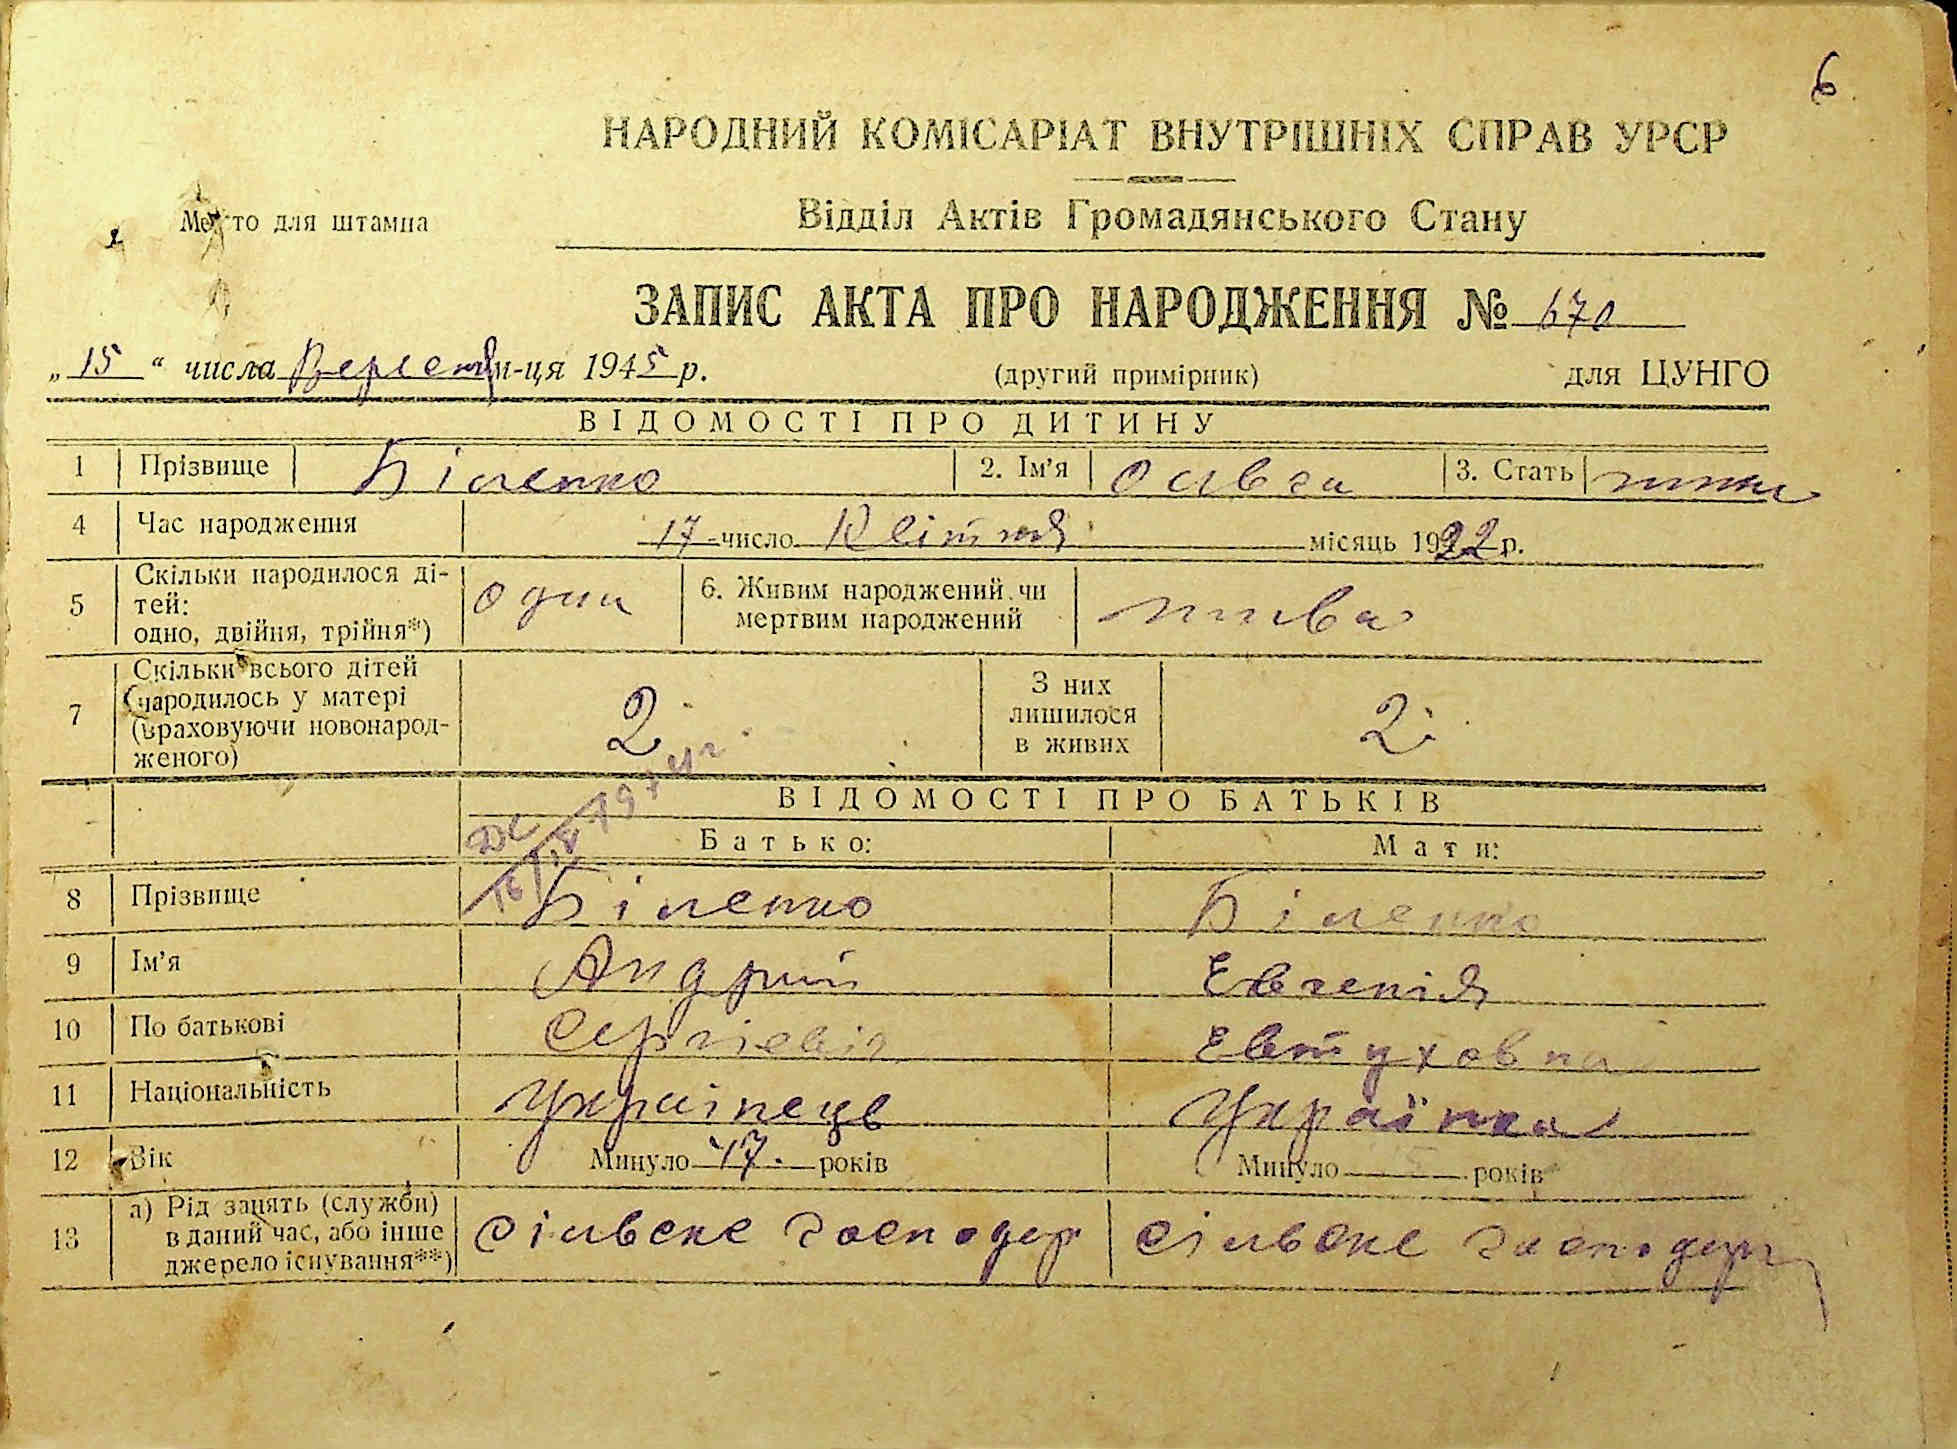 6
НАРОДНИЙ КОМІСАРІАТ ВНУТРІШНІХ СПРАВ УРСР
Место для штампа
Відділ Актів Громадянського Стану
ЗАПИС АКТА ПРО НАРОДЖЕННЯ № 670
„ 15 “ числа Вересня м-ця 1945 р. (другий примірник) для ЦУНГО
ВІДОМОСТІ ПРО ДИТИНУ
1 Прізвище Біленко 2. Ім'я Ольга 3. Стать жінки
4 Час народження 17 число Квітня місяць 1922 р.
5 Скільки народилося ді-
тей:
одно, двійня, трійня*) одна 6. Живим народжений чи
мертвим народжений жива
7 Скільки всього дітей
народилось у матері
(враховуючи новонарод-
женого) 2 З них
лишилося
в живих 2
ВІДОМОСТІ ПРО БАТЬКІВ
Батько: Мати:
8 Прізвище Біленко Біленко
9 Ім'я Андрий Евгенія
10 По батькові Сергієвіч Евтуховна
11 Національність Українець Українка
12 Вік Минуло 47 років Минуло років
13 а) Рід занять (служби)
в даний час, або інше
джерело існування**) сільське господар сільське господар